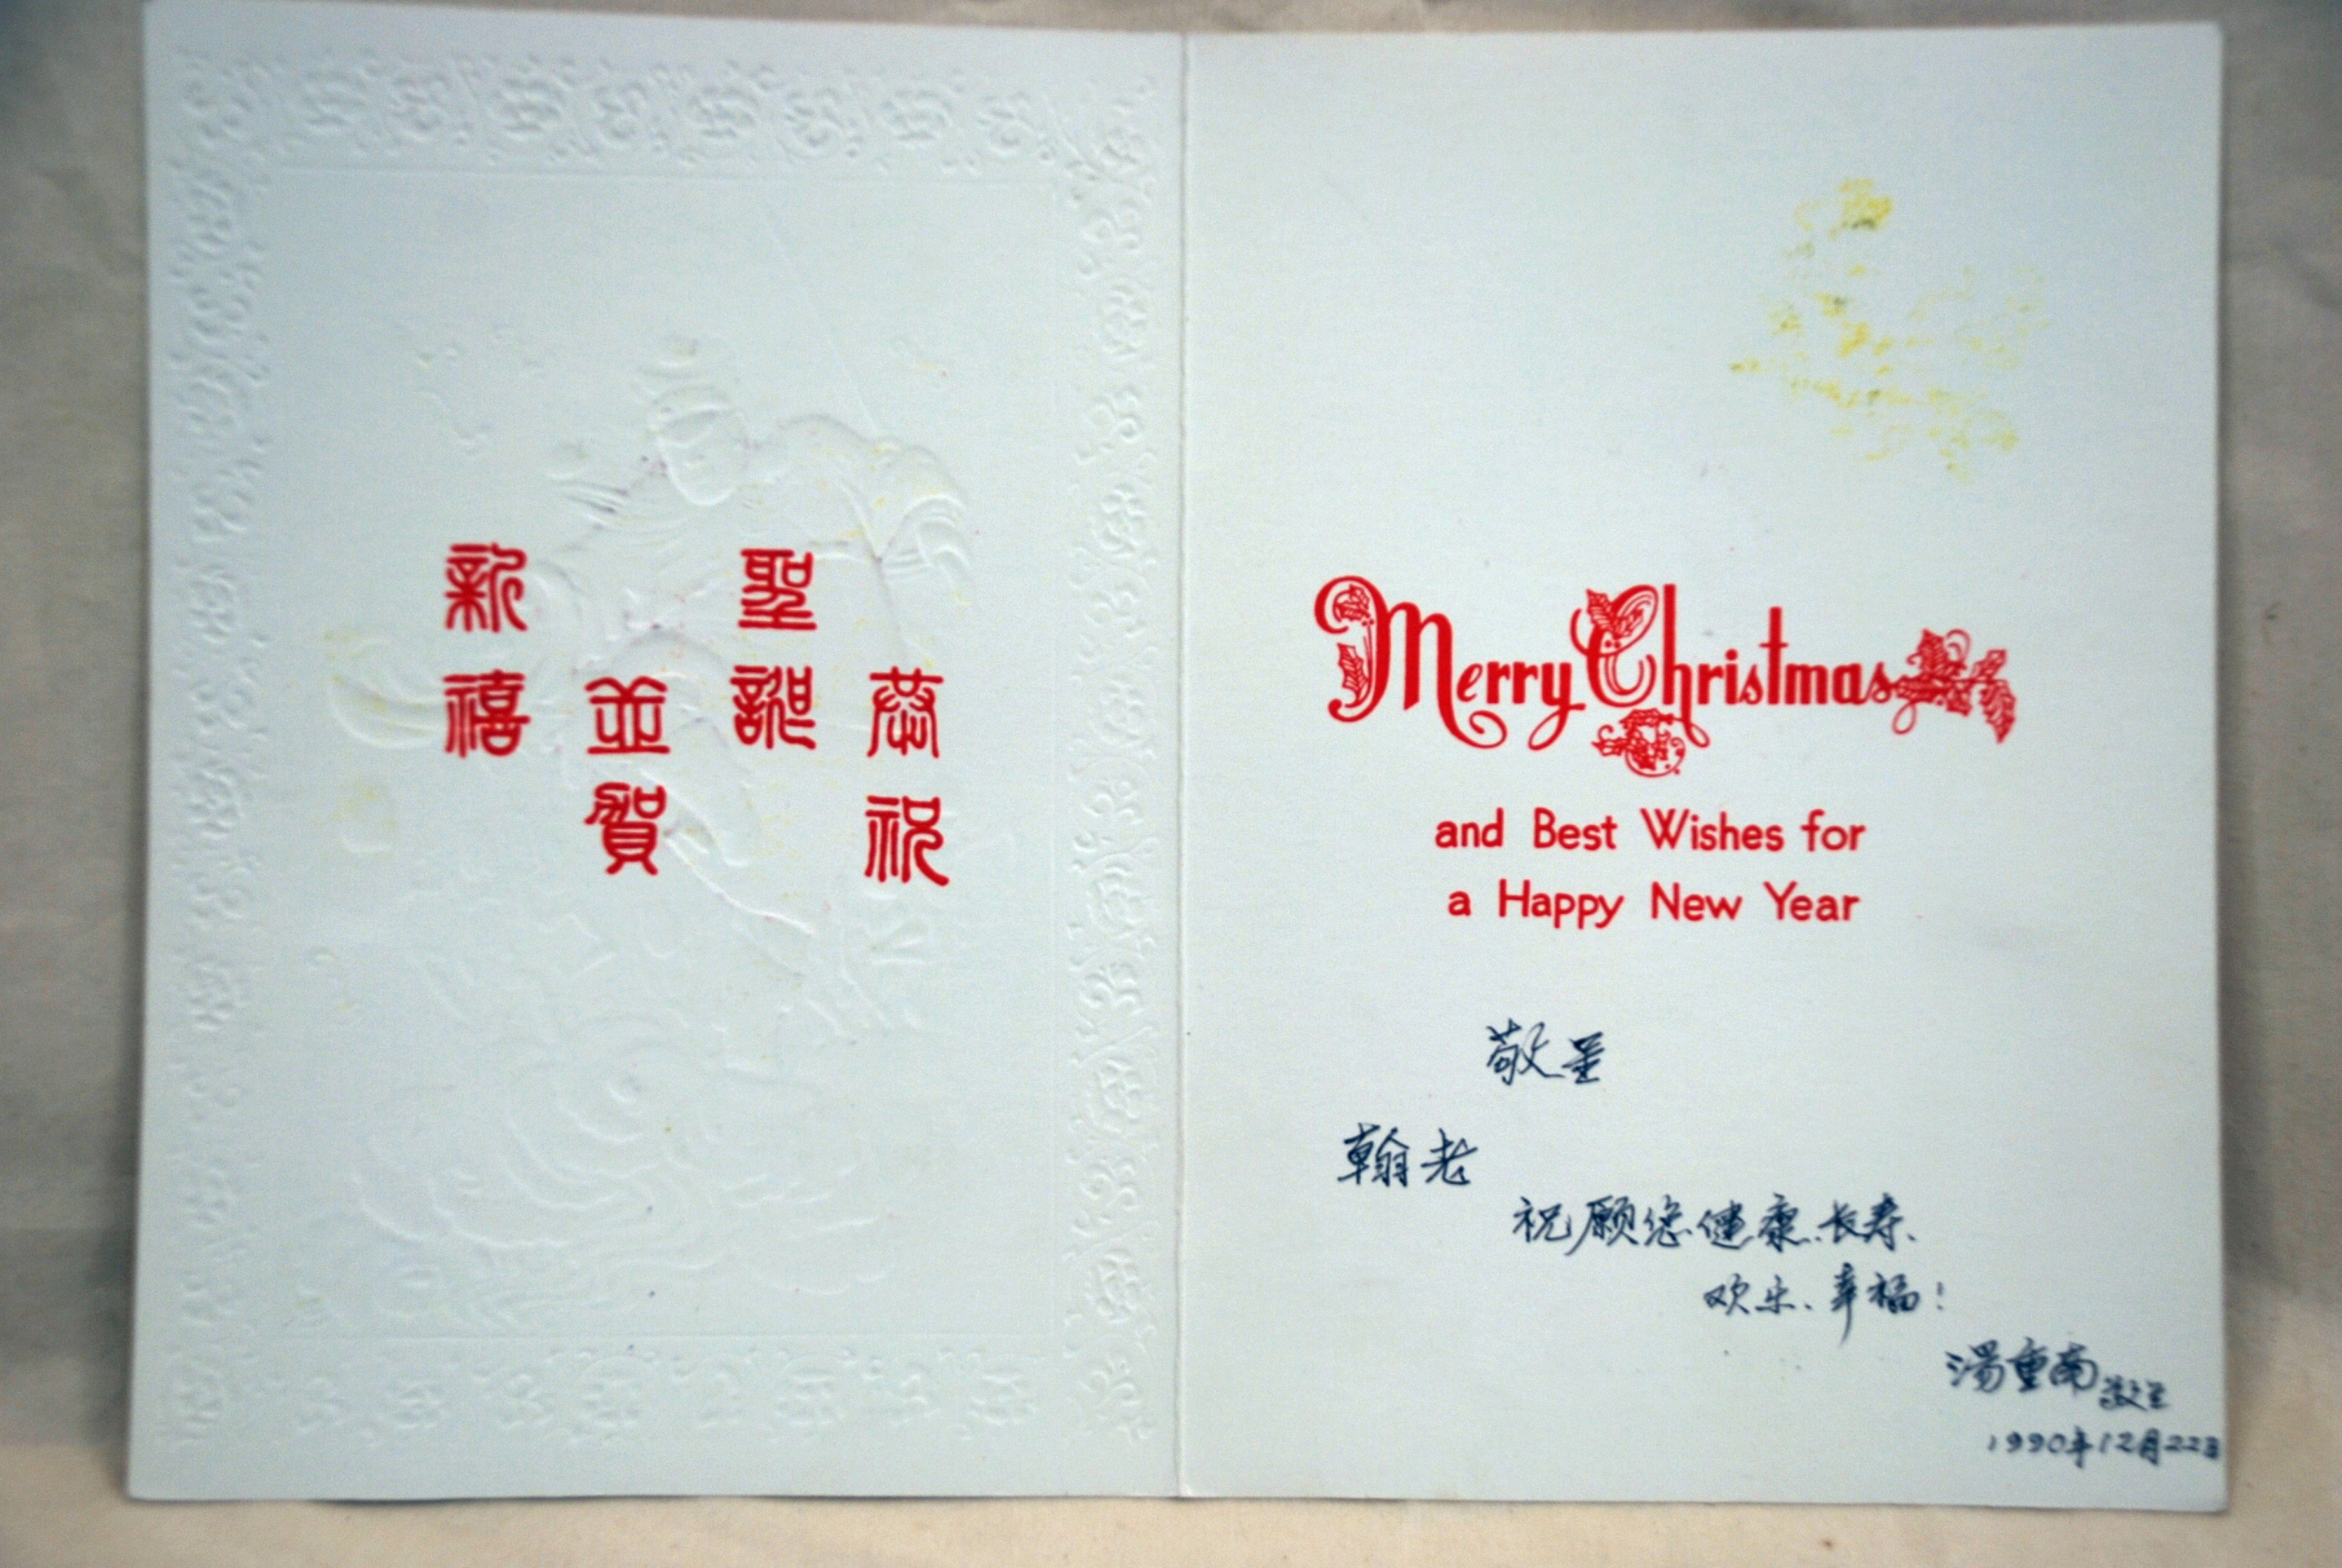 恭祝
聖誕
並賀
新禧
Merry Christmas
and Best Wishes for
a Happy New Year
敬呈
翰老
祝愿您健康、长寿、
欢乐、幸福！
湯重南敬呈
1990年12月22日